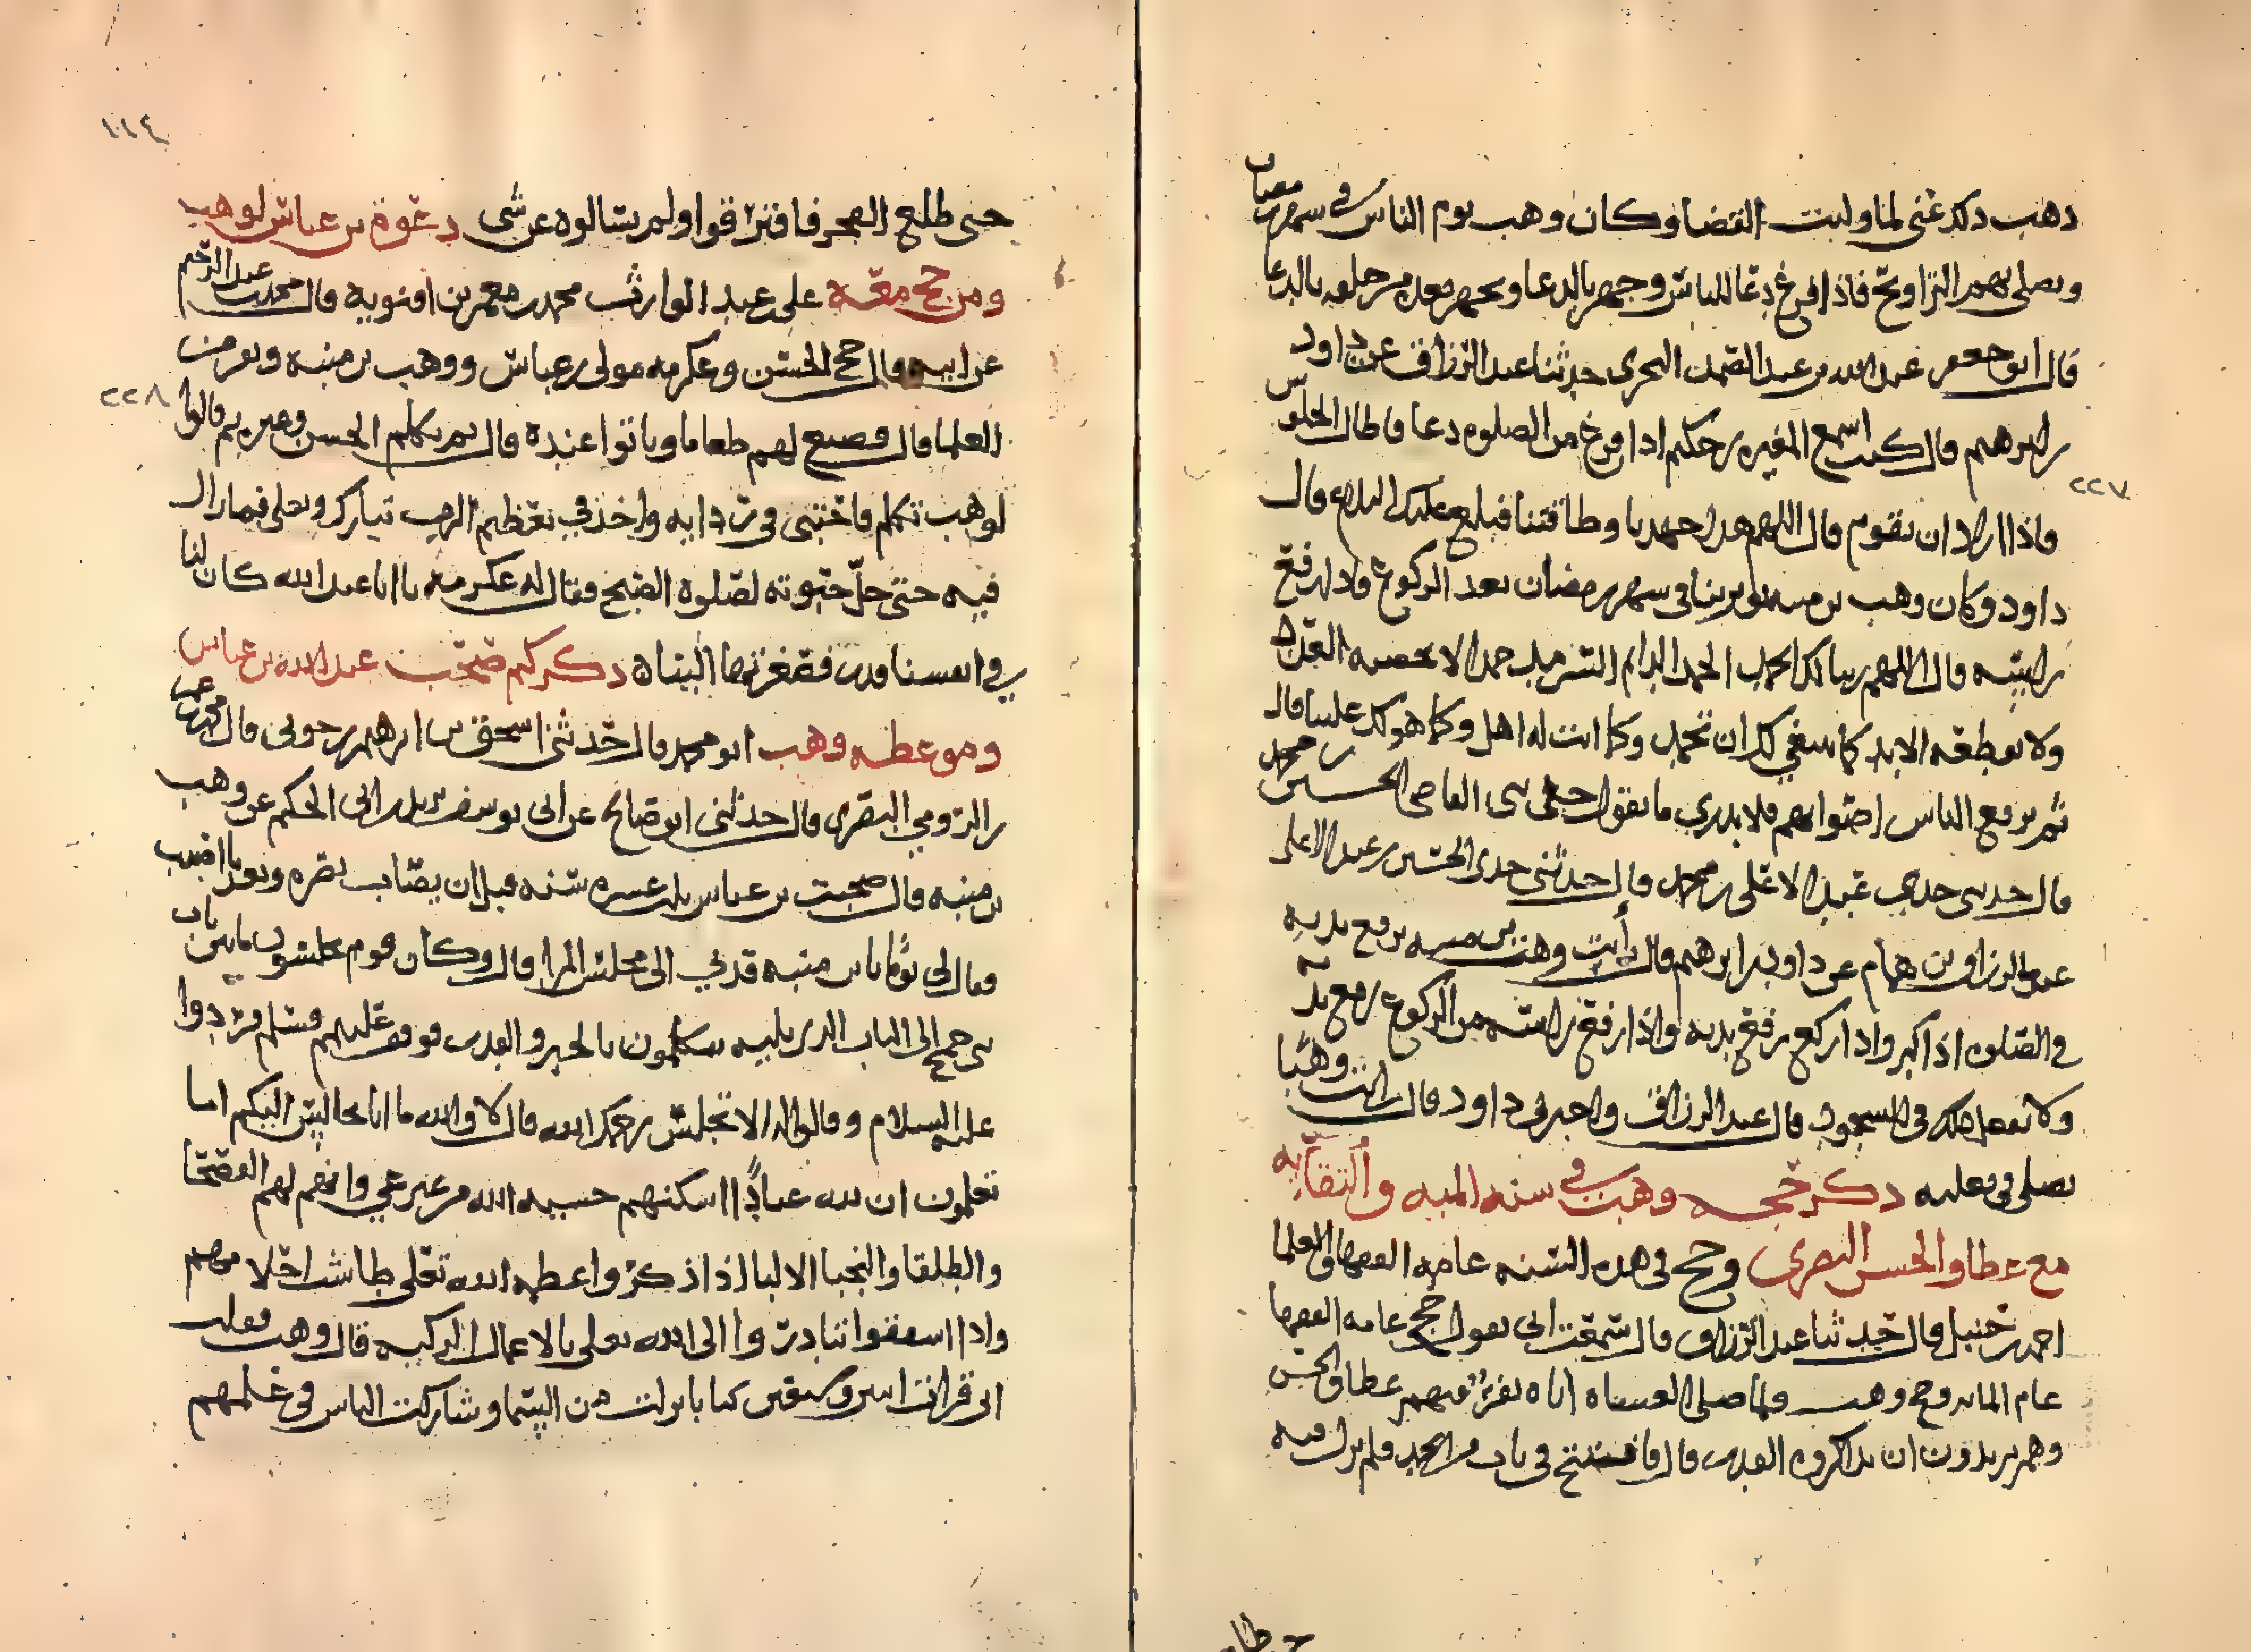 ذهب ذلك عني لما وليت القضا وكان وهب يوم الناس في شهر رمضان
ويصلي بهم التراويح فاذا فرغ دعا للناس وجهر بالدعا ويجهر معه من خلفه بالدعا
قال ابو جعفر عبد الله بن عبد الصمد البحري حدثنا عبد الرزاق عن داود
بن ابرهيم قال كنت اسمع المغيره بن حكيم اذا فرغ من الصلوه دعا فاطال الجلوس
واذا اراد ان يقوم قال اللهم هدا جهدنا وطاقتنا فبلغ عليك البلاغ قال
داود وكان وهب بن منبه يوتر بنا في شهر رمضان بعد الركوع فاذا رفع
راسه قال اللهم ربنا لك الحمد الحمد الدايم السرمد حمدا لا يحصيه العدد
ولا يقطعه الابد كما ينبغي لك ان تحمد وكما انت له اهل وكما هو لك علينا قال
ثم يرفع الناس اصواتهم فلا يدري ما يقول حدثني القاضي الحسين بن محمد
قال حدثني جدي عبد الاعلى بن محمد قال حدثني جدي الحسين بن عبد الاعلى
عبد الرزاق بن همام عن داود بن ابرهيم قال رأيت وهب بن منبه يرفع يديه
في الصلوه اذا كبر واذا ركع رفع يديه واذا رفع راسه من الركوع رفع يديه
ولا يفعل ذلك في السجود قال عبد الرزاق واخبرني داود قال رايت وهبا
يصلي في نعليه ذكر حجه وهب في سنه الميه والتقايه
مع عطا والحسن البصري وحج في هذه السنه عامه الفقها والعلما
احمد بن حنبل قال حدثنا عبد الرزاق قال سمعت ابي يقول حج عامه الفقها
عام المايه وحج وهب فلما صلى العشاء اتاه نفر منهم عطا والحسن
وهم يريدون ان يذاكروه القدر قال فافتتح في باب من الحمد فلم يزل فيه
٢٢٧
حتى طلع الفجر فافترقوا ولم يسالوه عن شي دعوة بن عباس لوهب
ومن حج معه علي بن عبد الوارث محمد بن معمر بن افنويه قال محمد بن عبد الرحيم
عن ابيه قال حج الحسن وعكرمه مولى بن عباس ووهب بن منبه ونفر من
العلما قال فصنع لهم طعاما وباتوا عنده قال ثم تكلم الحسن وغيره ثم قالوا
لوهب تكلم فاحتبى في ردايه واخذ في تعظيم الرب تبارك وتعلى فما زال
فيه حتى حل حبوته لصلوه الصبح فقال له عكرمه يا ابا عبد الله كان لنا
في انفسنا قدر فصغرتها الينا ذكركم صحب عبد الله بن عباس
وموعظه وهب ابو محمد قال حدثني اسحق بن ابرهيم بن جوتي قال محمد بن
بن الرومي البصري قال حدثني ابو صالح عن ابي يوسف بن ابي الحكم عن وهب
بن منبه قال صحبت بن عباس ثلث عشره سنه قبل ان يصاب بصره وبعد ما اصيب
فقال لي يوما يابن منبه قدني الى مجلس المرا قال وكان قوم يجلسون ما بين باب
بني جمح الى الباب الذي يليه يتكلمون بالجبر والقدر فوقف عليهم فسلم فردوا
عليه السلام وقالوا له الا تجلس رحمك الله قال لا والله ما انا بجالس اليكم اما
تعلمون ان لله عبادا اسكنهم خشيه الله من غير عي وانهم لهم الفصحا
والطلقا والنجبا الالبا اذا ذكروا عظمه الله تعلى طاشت احلامهم
واذا استفقوا تبادروا الى الله تعلى بالاعمال الزكيه قال وهب فقلت
اني قرات اثنين وسبعين كتابا نزلت من السما وشاركت الناس في علمهم
٢٢٨